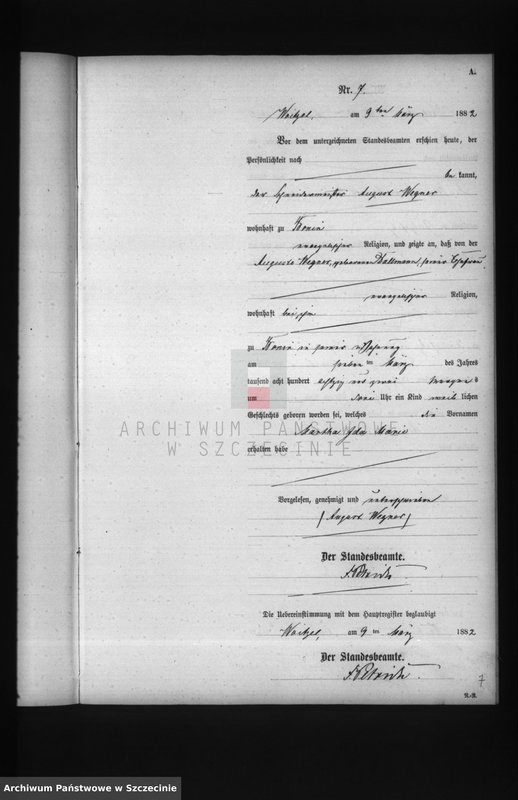 A.
Nr. 7.
am 9ten März 1882
Vor dem unterzeichneten Standesbeamten erschien heute, der
Persönlichkeit nach
be kannt,
der Schneidermeister August Wegner
wohnhaft zu
evangelischer Religion, und zeigte an, daß von der
Auguste Wegner, geborenen seiner Ehefrau,
evangelischer Religion,
wohnhaft bei ihm
zu in seiner Wohnung
am sieben ten März des Jahres
tausend acht hundert achtzig und zwei Morgen s
um drei Uhr ein Kind weib lichen
Geschlechts geboren worden sei, welches die Vornamen
Martha Ida Marie
erhalten habe
Vorgelesen, genehmigt und unterschrieben
(August Wegner)
Der Standesbeamte.
Die Uebereinstimmung mit dem Hauptregister beglaubigt
am 9 ten März 1882.
Der Standesbeamte.
7
ARCHIWUM PAŃSTWOWE
W SZCZECINIE
Archiwum Państwowe w Szczecinie